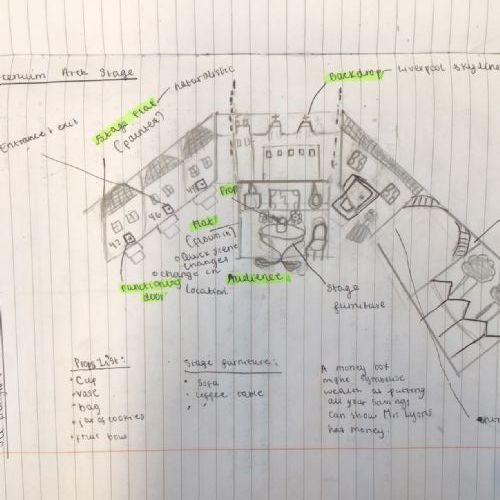 Arch Stage
naturalistic
Backdrop - Liverpool skyline
Entrance + exit
Stage Flat
(painted)
Prop
Flat
(flown in)
Quick scene
changes
change in
location
47
46
Functioning
door
Audience
Stage
furniture
Props List:
• Cup
• Vase
• bag
• jar of cookies
• fruit bowl
Stage furniture:
• Sofa
• coffee table
A money box
wealth as putting
all your savings
can show Mrs Lyons
has money.